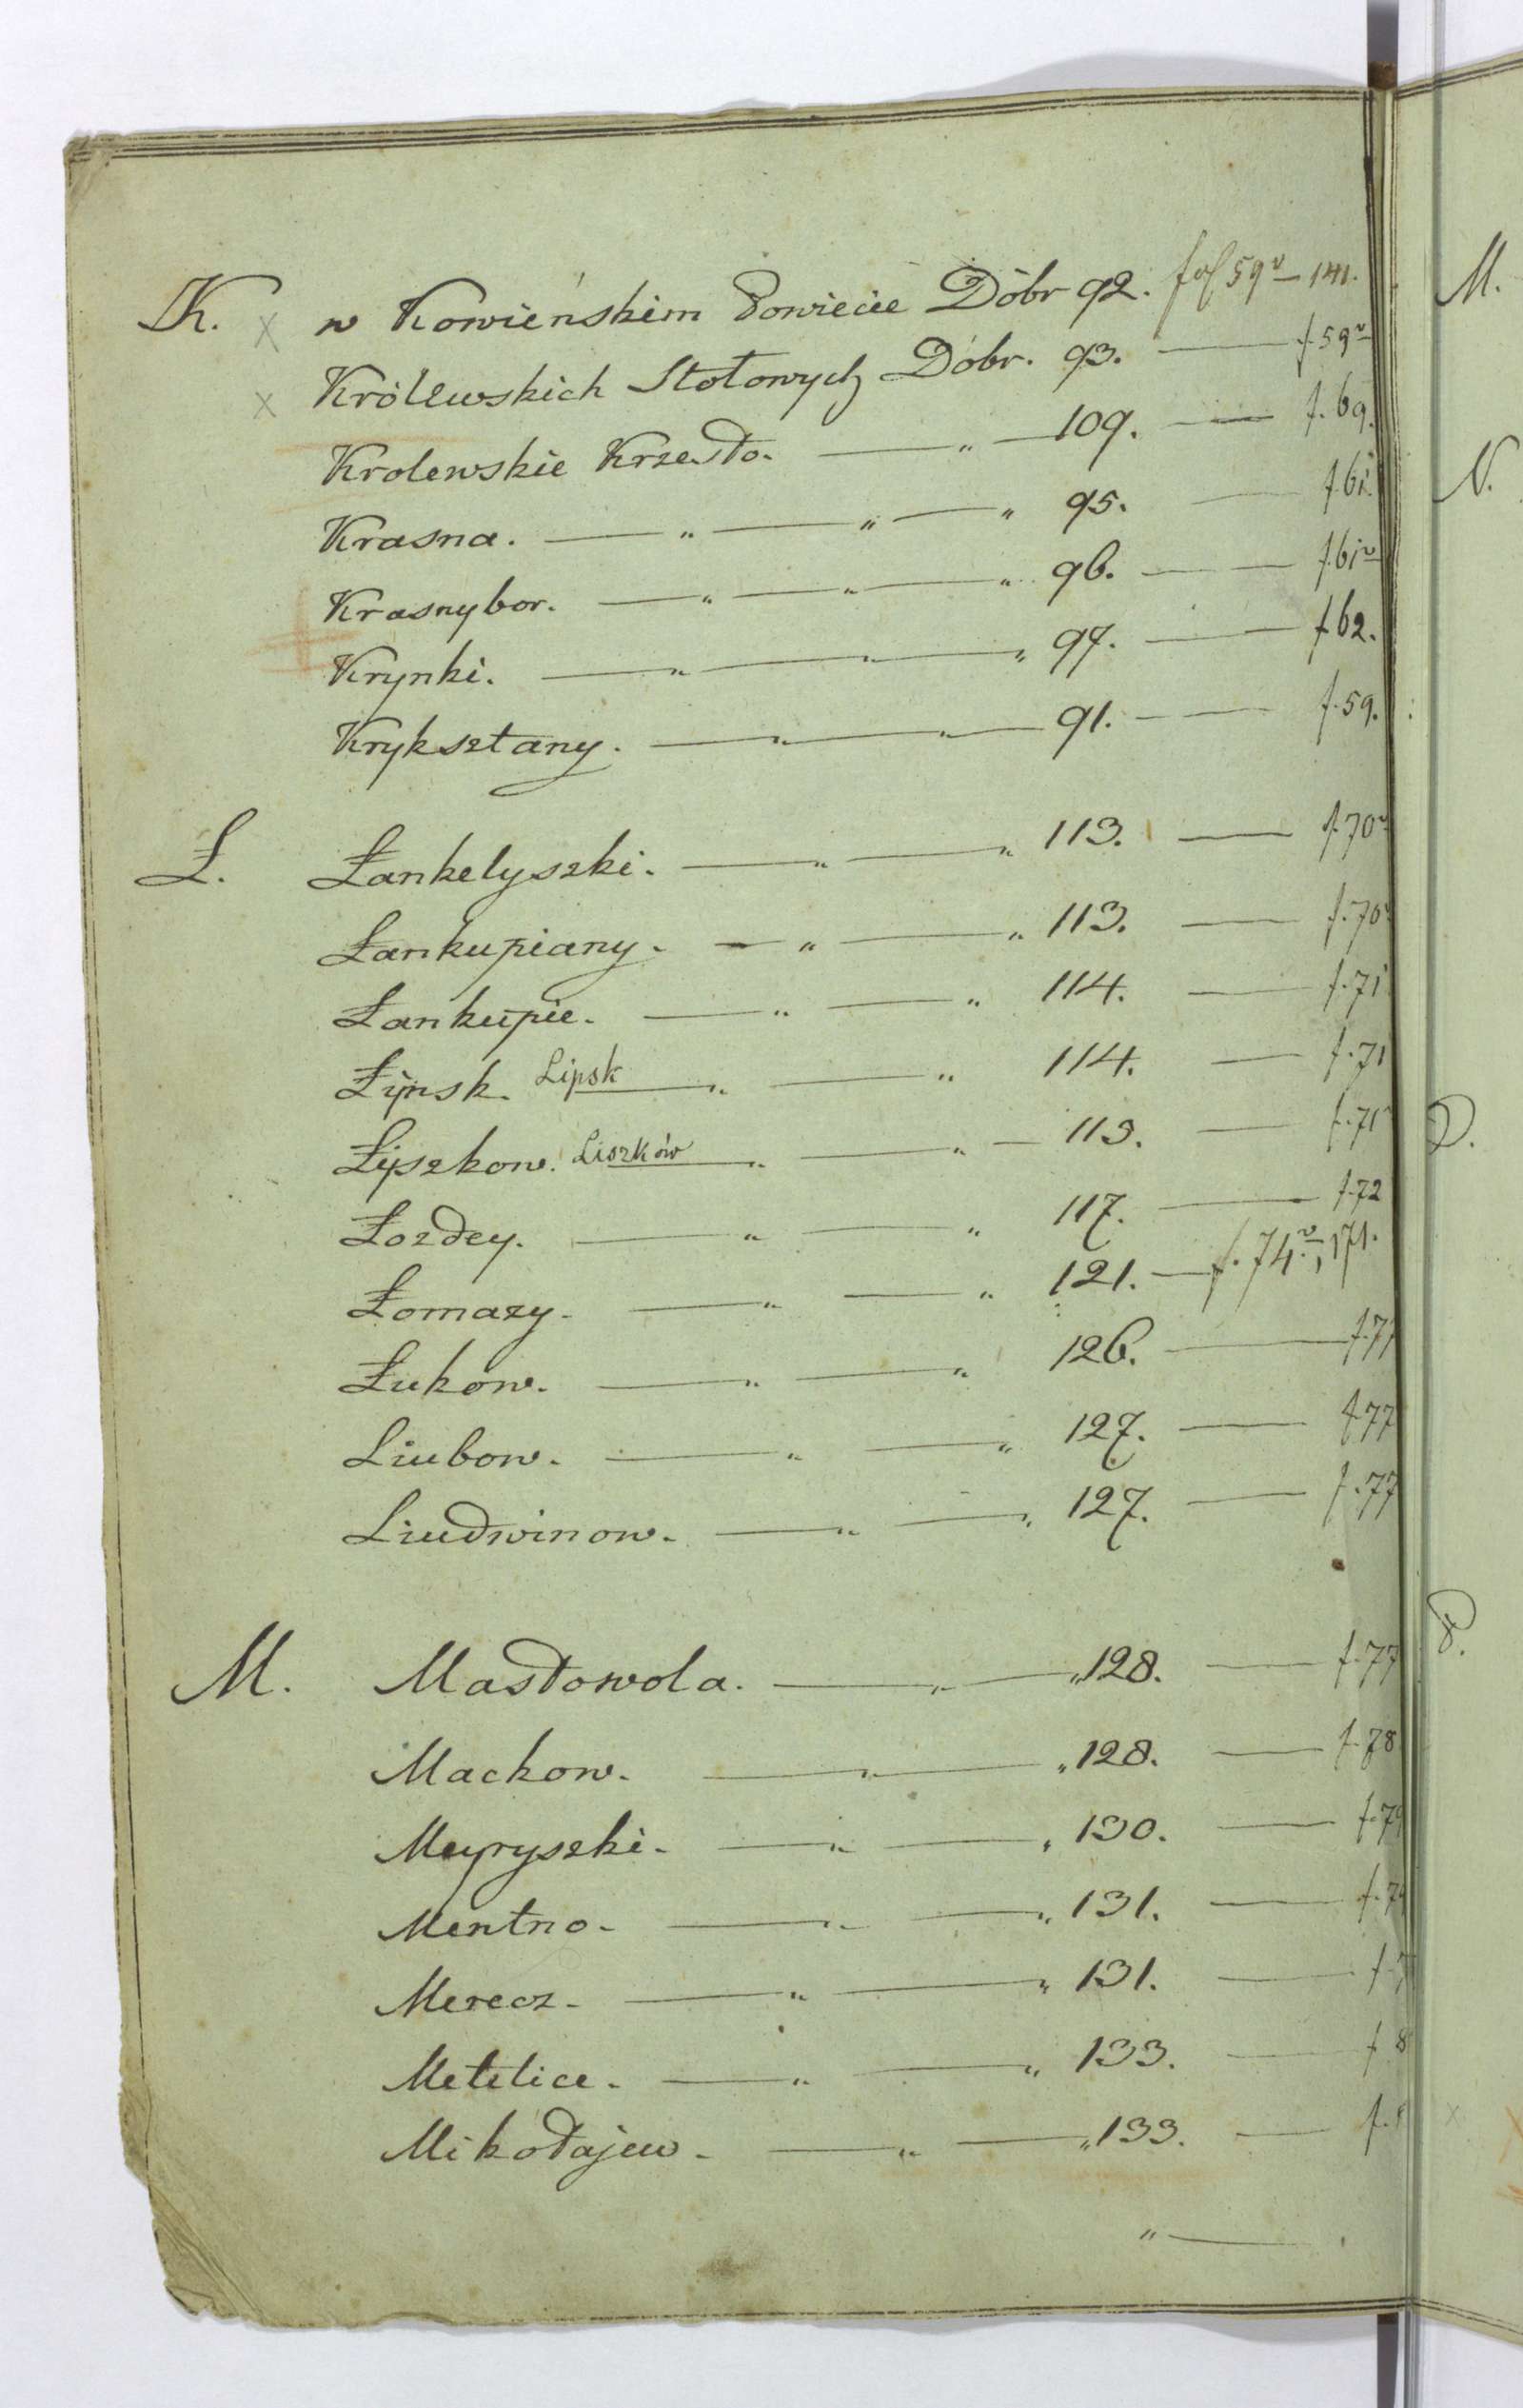 K. x w Kowieńskim Powiecie Dóbr 92. fol 59v — 141.
x Królewskich Stołowych Dóbr. 93. — f. 59v
Krolewskie Krzesło. — „ — 109. — f. 69.
Krasna. — „ — „ — „ 95. — f. 61.
Krasnybor. — „ — „ — „ 96. — f. 61v
Krynki. — „ — „ — „ 97. — f. 62.
Kryksztany. — „ — „ — 91. — f. 59.
Ł. Łankelyszki. — „ — „ 113. — f. 70v
Łankupiany. — „ — „ 113. — f. 70v
Łankupie. — „ — „ 114. — f. 71
Łipsk. Lipsk — „ — „ 114. — f. 71
Łiszkow. Liszków — „ — „ — 115. — f. 71v
Łozdey. — „ — „ 117. — f. 72
Łomazy. — „ — „ 121. — f. 74v, 171.
Łukow. — „ — „ 126. — f. 77
Liubow. — „ — „ 127. — f. 77
Liudwinow. — „ — „ 127. — f. 77
M. Masłowola. — „ — „ 128. — f. 77
Mackow. — „ — „ 128. — f. 78
Meyryszki. — „ — „ 130. — f. 79
Mentno. — „ — „ 131. — f. 79
Merecz. — „ — „ 131. — f. 7
Metelice. — „ — „ 133. — f. 8
Mikołajew. — „ — „ 133. — f. 8
„ —
M.
N.
O.
P.